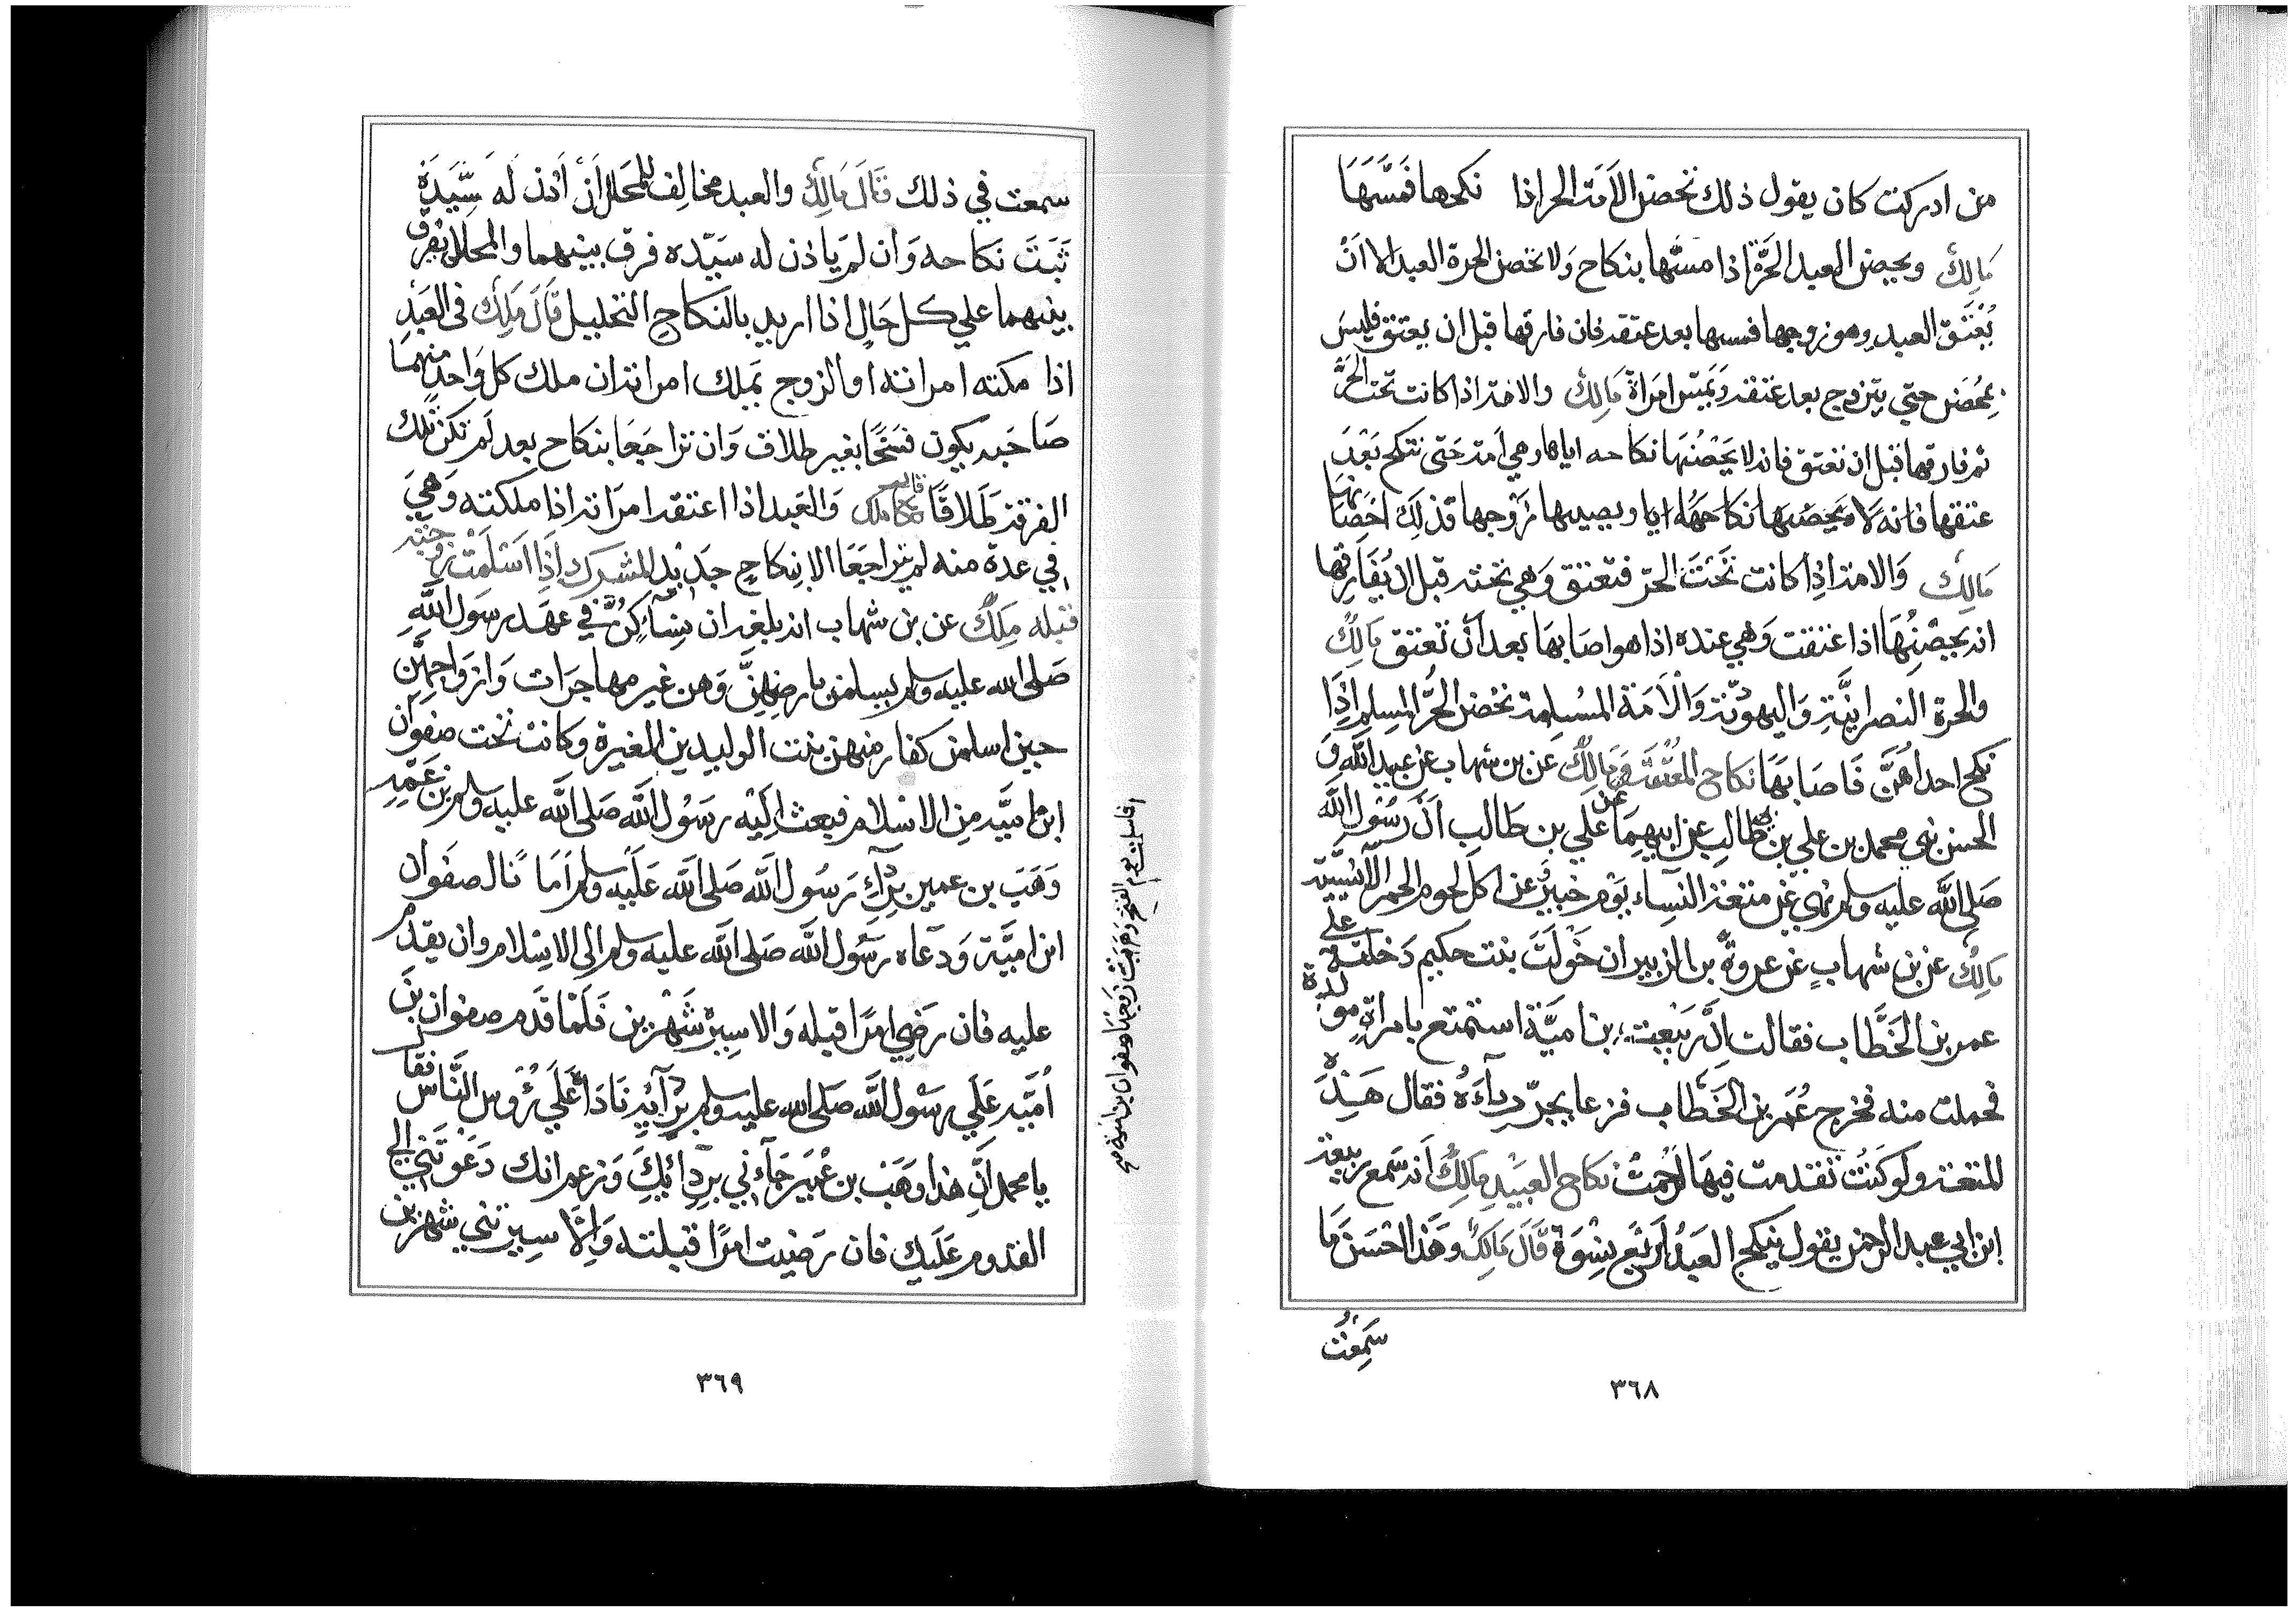 من ادركت كان يقول ذلك تحصن الأمة الحر اذا نكحها فمسَّها
مالك ويحصن العبد الحرَّة اذا مسَّها بنكاح ولا تحصن الحرة العبد الا أن
يُعْتَق العبد وهو زوجها فيمسها بعد عتقه فان فارقها قبل ان يعتق فليس
بمُحْصَن حتي يتزوج بعد عتقه ويَمَسّ امرَاة مالك والامة اذا كانت تحت الحرّ
ثم فارقها قبل ان تعتق فانه لا يُحْصنُهَا نكاحه اياها وهي أمة حَتى تنكح بَعْدَ
عتقها فانه لا يحصنها نكاحهُ اياها ويصيبها زَوجها فذلك احصَانها
مالك والامة اذا كانت تَحْتَ الحرّ فتعتق وَهي تحته قبل ان يُفَارقها
انه يحصنُهَا اذا عتقت وَهي عنده اذا هو اصابها بعد أن تعتق مالكٌ
والحرة النصرانيَّة وَاليهوديّة وَالأمَة المسُلِمة تحْصن الحُرَّ المسلم إذَا
نكح احداهُنَّ فَاصابهَا نكاح المُتْعَة مَالِكٌ عن بن شهاب عن عبد الله وَ
الحسن بني محمد بن علي بن طالبٍ عن ابيهِمَا عن علي بن طالب أنَّ رسُول الله
صَلى الله عليه وسلم نهي عن متعة النسآء يَوْم خيبر وعن اكل لحوم الحمر الانسيَّة
مالكٌ عن بن شهابٍ عن عروةَ بن الزبير ان خَوْلَةَ بنت حكيم دَخلت على
عمر بن الخَطَّاب فقالت اِنَّ رَبيْعة بن اميَّة استمتع بامرأةٍ مولدة
فحملت منه فخرج عُمَر بن الخَطاب فزعا يجرّ ردآءَهُ فقال هَذِهِ
المتعة ولو كنتُ تقدمت فيهَا لَرَجمْتُ نكاح العَبيْدِ مَالِكٌ أنه سَمع ربيعة
ابن ابي عبد الرحمن يقول ينكح العَبدُ أربَع نِسْوَة قَالَ مَالِكٌ وهَذا احْسَن مَا
سَمِعْتُ
٣٦٨
سمعت في ذلك قَالَ مَالِكٌ والعبد مخالف للمُحَلل أنْ أذن لَه سَيّدهُ
ثَبَتَ نكاحه وَان لم يَاذن له سَيّده فرق بينهما والمحلل يُفَرق
بينهما علي كل حَالٍ اذا اريد بالنكاحِ التحليل قَالَ مَلِك في العَبْدِ
اذا مكته امراته او الزوج يملك امراته ان ملك كل وَاحدٍ منهما
صَاحبه يكون فسْخًا بغير طلاق وَان تراجَعَا بنكاح بعد لَم تكن تلك
الفرقة طَلاقًا قال ملك وَالعَبد اذا اعتقه امرَاته اذا ملكته وَهيَ
في عدة منه لم يتراجَعَا الا بنكاحٍ جَديْدٍ المشرك اِذَا اَسْلَمْت زوجته
قبله مَلِكٌ عن بن شهاب انه بلغه ان نِسَآء كُنَّ في عهْد رسُول الله
صَلى الله عليه وسلم يسلمن بارضهِنَّ وَهن غير مهاجرَات وَازوَاجهن
حين اسلمن كفار منهن بنت الوليد بن المغيرة وكانت تحت صفوَان
ابن اميَّه
من الاسْلام فبعث اِلَيْه رسُول الله صَلى الله عليه وسلم بن عَمِّهِ
وَهَبَ بن عمير بردآءِ رسُول الله صَلى الله عَليه وسلم أمَانًا لصفوَان
ابن اميَّة وَدعَاه رسُول الله صَلى الله عليه وسلم الى الاسْلام وان يقدمُ
عليه فان رضِيَ امرًا قبله وَالا سيرهُ شَهْرين فَلَمّا قَدم صفوان بنَ
أميَّه عَلَي رسُول الله صَلى الله عليه وسلم بردَآئِهِ نَادَاهُ عَلَي رُؤُس النَّاس فقال
يا محمد اَنّ هذا وَهَبَ بن عُمَير جَآءني برِدَائِكَ وَزعم انك دَعَوْتَني الي
القدوم عَلَيك فان رَضيت امرًا قبلته وَالّا سيرتني شهرين
اسلمت يوم الفتح وهرب زوجها صفوان بن امية صح
٣٦٩